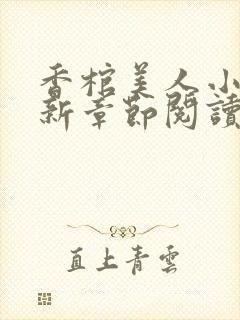 香棺美人小
新章節閱讀
直上青雲